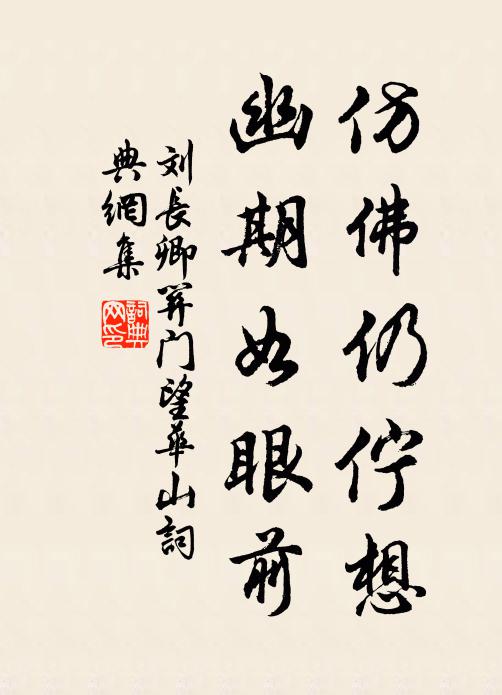 仿佛仍佇想
幽期如眼前
刘長卿关门望華山詞
典網集
詞典
网印